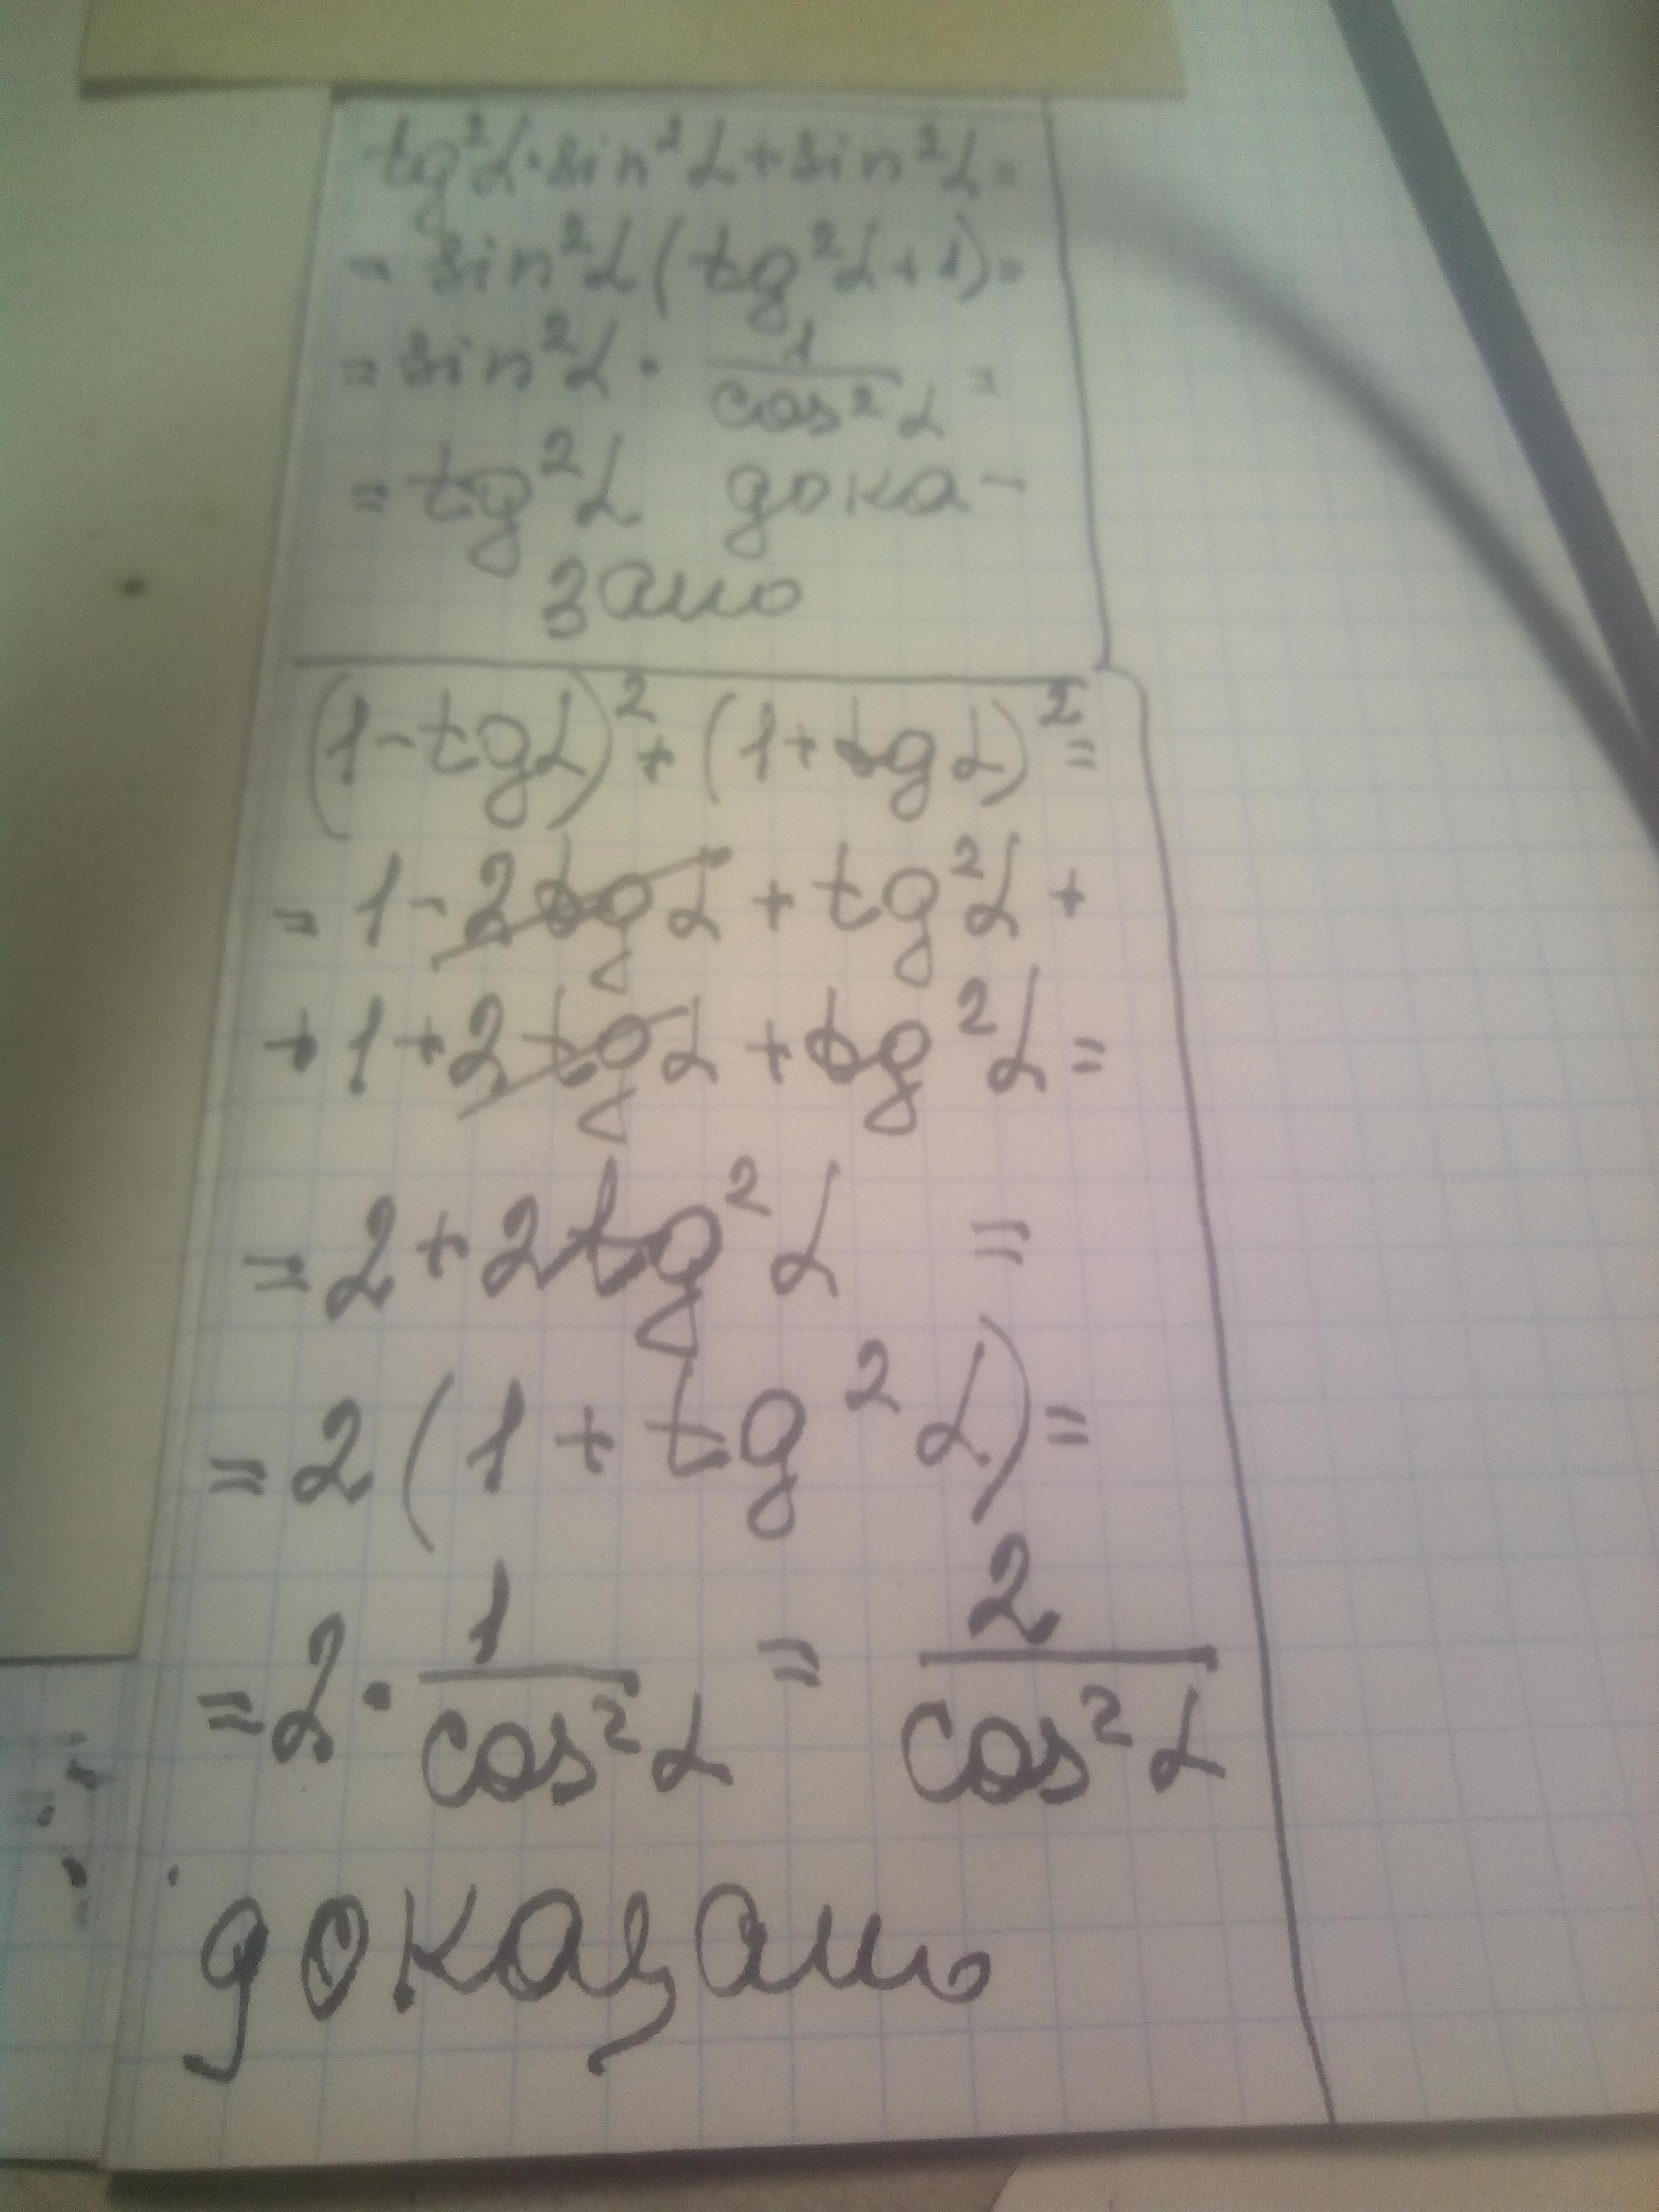 tg²α·sin²α+sin²α=
= sin²α(tg²α+1)=
= sin²α · 1/cos²α =
= tg²α дока-
зано
(1-tgα)²+(1+tgα)²=
= 1-2tgα+tg²α+
+1+2tgα+tg²α=
=2+2tg²α =
=2(1+tg²α)=
=2·1/cos²α = 2/cos²α
доказано